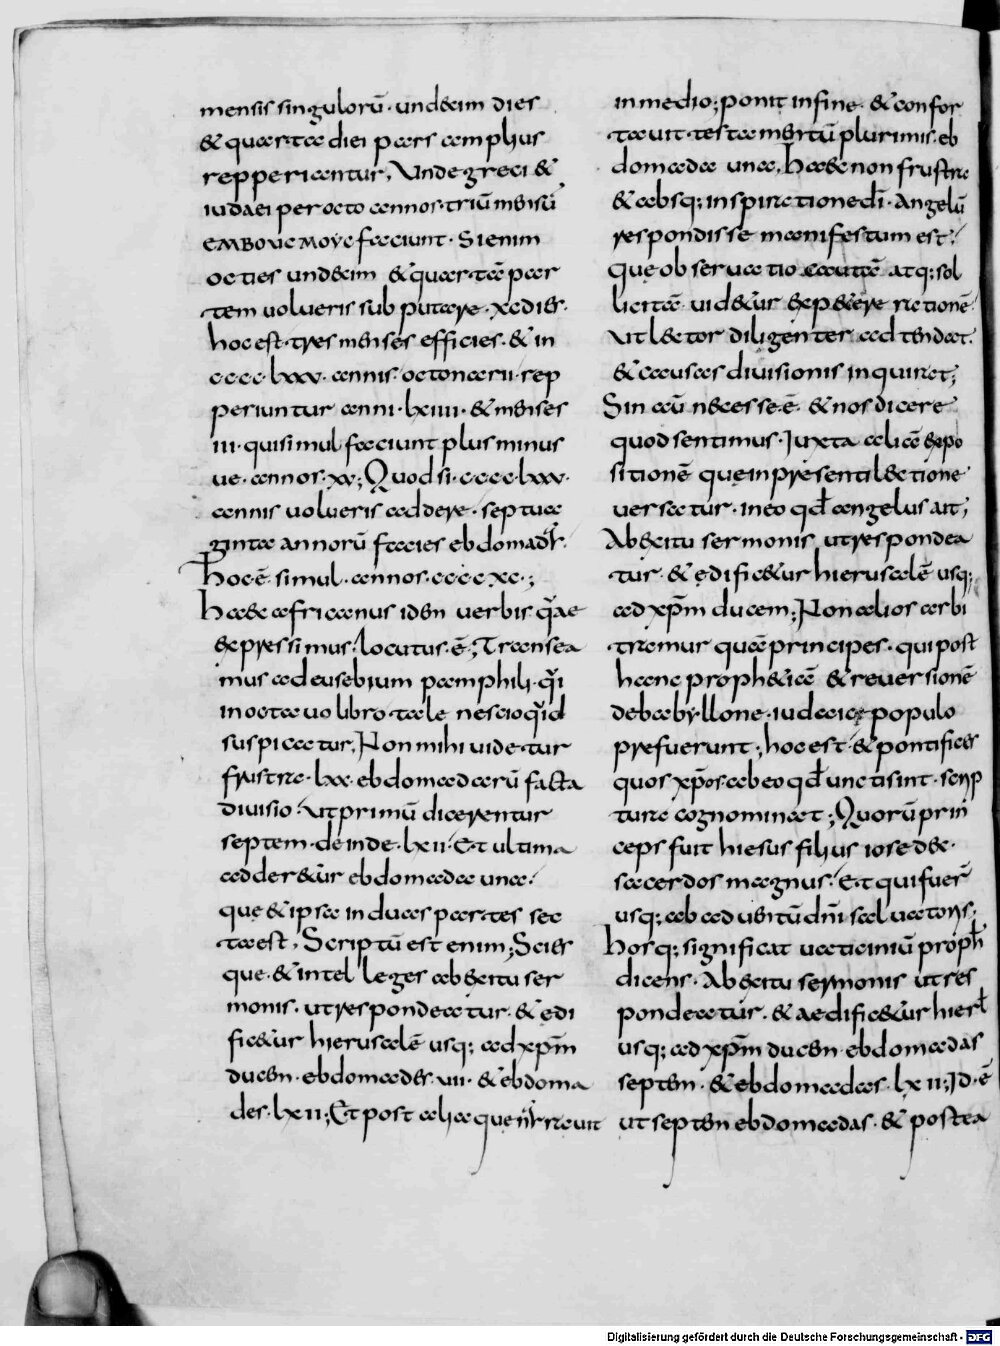 mensis singulorū· undecim dies
& quarta diei pars amplius
repperiantur, Unde greci &
iudaei per octo annos· triū mensiū
ΕΜΒΟΛΙСΜΟΥС faciunt· Si enim
octies undecim & quartā par
tem uolueris subputare· xc dies·
hoc est· tres menses efficies· & in
cccc·lxxv· annis· octonarii· rep
periuntur anni· lxiiii· & menses
iii· qui simul faciunt plus minus
ue· annos· xv; Quod si· cccc·lxxv·
annis uolueris addere· septua
ginta annorū facies ebdomader·
Hoc ē· simul· annos· cccc xc·;
Haec africanus isdem uerbis q̄ae
expressimus· locutus· ē; Transea
mus ad eusebium pamphili· q̄i
in octauo libro· tale nescio q̄id
suspicatur, Non mihi uidetur
frustra· lxx· ebdomadarū facta
diuisio· ut primū dicerentur
septem· deinde· lxii· Et ultima
adderetur ebdomada una·
que & ipsa in duas partes sec
ta est, Scriptū est enim; Scies
que· & intelleges ab exitu ser
monis· ut respondeatur· & edi
ficetur hierusalē usq; ad xpm̄
ducem· ebdomades· vii· & ebdoma
des· lxii; Et post alia que narrauit
in medio; ponit in fine· & confor
tauit· testamentū plurimis· eb
domada una, Haec non frustra
& absq; inspiratione dī· Angelū
respondisse manifestum est·
Quę obseruatio cautā atq; sol
licitā uidetur expetere rationē·
Ut lector diligenter adtendat·
& causas diuisionis inquirat;
Sin autē necesse· ē· & nos dicere
quod sentimus· Juxta aliā expo
sitionē que in presenti lectione
uersatur· in eo qd̄ angelus ait;
Ab exitu sermonis ut respondea
tur· & edificetur hierusalē usq;
ad xpm̄ ducem; Non alios arbi
tremur quā principes· qui post
hanc prophetiā & reuersionē
de babyllone· iudaico populo
prefuerunt; hoc est· & pontifices
quos xpos· ab eo qd̄ uncti sint· scrip
turę cognominat; Quorū prin
ceps fuit hiesus filius iosedec·
sacerdos magnus· Et qui fuer̄
usq; ab aduentū dn̄i saluatoris;
Hosq; significat uaticiniū proph̄
dicens· Ab exitu sermonis ut res
pondeatur· & aedificetur hierl̄
usq; ad xpm̄ ducem ebdomadas
septem· & ebdomadas· lxii; Id· ē
ut septem ebdomadas· & postea
Digitalisierung gefördert durch die Deutsche Forschungsgemeinschaft - DFG